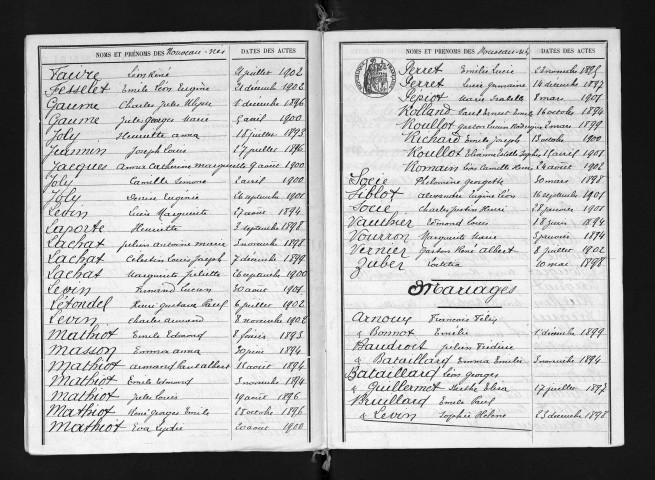 NOMS ET PRÉNOMS DES Nouveau-nés DATES DES ACTES
Faivre Léon René juillet 1902
Fesselet Emile Léon Eugène 21 décembre 1902
Gaume Charles Jules Ulysse 1 décembre 1896
Gaume Jules Georges Marie 5 avril 1900
Joly Henriette Anna 18 juillet 1893
Jeannin Joseph Louis 27 juillet 1896
Jacques Anna Catherine Marguerite 9 août 1900
Joly Camille Simone 2 avril 1900
Joly Denise Eugénie 26 septembre 1901
Levin Lucie Marguerite 27 août 1894
Laporte Henriette 3 septembre 1898
Lachat Julien Antoine Marie 3 novembre 1898
Lachat Célestin Louis Joseph 7 décembre 1899
Lachat Marguerite Juliette 26 septembre 1900
Levin Fernand Lucien 30 août 1901
Létondel Henri Gustave Paul 6 juillet 1902
Levin Charles Armand 8 novembre 1902
Mathiot Emile Edouard 8 février 1893
Masson Emma Anna 30 juin 1894
Mathiot Armand Paul Albert 11 août 1894
Mathiot Emile Edmond 3 novembre 1894
Mathiot Jules Louis 19 août 1896
Mathiot René Georges Emile 28 octobre 1896
Mathiot Eva Lydie 20 août 1900
NOMS ET PRÉNOMS DES Nouveau-nés DATES DES ACTES
Perret Emélie Lucie novembre 1895
Perret Lucie Germaine 14 décembre 1897
Pépiot Marie Isabelle 8 mars 1901
Rolland Paul Ernest Emile 16 octobre 1894
Roullot Gaston Lucien Rodrigue 2 mars 1899
Richard Emile Joseph 13 octobre 1900
Roullot Sophie 11 avril 1901
Romain Léon Camille Henri 24 août 1902
Socié Philomène Georgette 30 mars 1898
Siblot Alexandre Eugène Léon 16 septembre 1901
Socié Charles Justin Henri 28 janvier 1901
Vauthier Edmond Louis 18 juin 1894
Vourron Marguerite Marie 5 janvier 1894
Vernier Gaston René Albert 8 juillet 1902
Zuber Laetitia 10 mai 1898
Mariages
Arnoux François Félix
& Bonnot Emélie 1 décembre 1899
Baudroit Julien Frédéric
& Bataillard Emma Emélie 3 novembre 1894
Bataillard Léon Georges
& Guillemet Berthe Elisa 17 juillet 1897
Bruillard Emile Paul
& Levin Sophie Hélène 23 décembre 1898